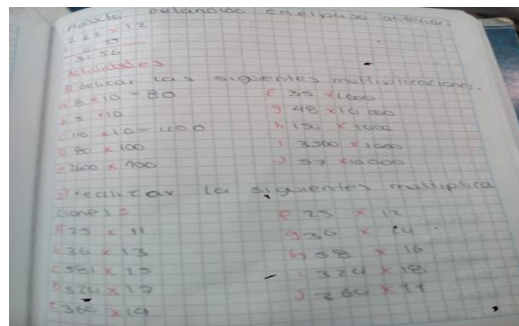 263 x 12
3156
Actividades
1) realizar las siguientes multiplicaciones.
a 8 x 10 = 80
b 5 x 10
c 10 x 10 =
d 80 x 100
e 2600 x 100
f 35 x 1000
g 48 x 10 000
h 150 x 1000
i 3500 x 1000
j 57 x 10 000
2) realizar la siguientes multiplica
ciones:
a 25 x 11
b 36 x 13
c 581 x 15
d 324 x 17
e 360 x 19
f 25 x 12
g 36 x 14
h 58 x 16
i 324 x 18
j 360 x 11